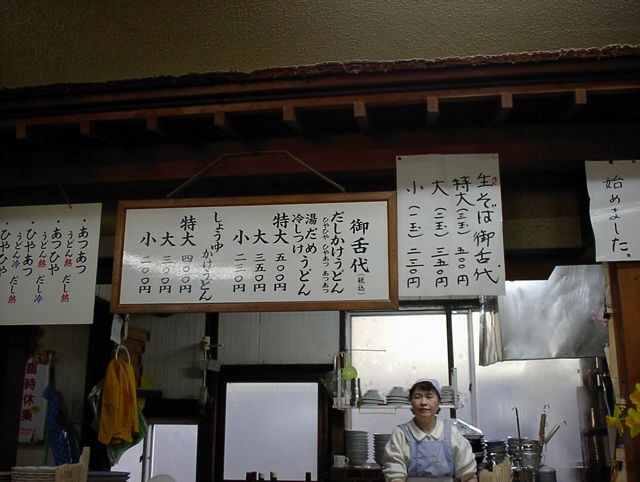 始めました。
生そば御舌代
特大(三玉)五〇〇円
大(二玉)三五〇円
小(一玉)二三〇円
御舌代(税込)
だしかけうどん
ひやひや ひやあつ あつあつ
湯だめうどん
冷しつけ
特大 五〇〇円
大 三五〇円
小 二三〇円
しょうゆかけうどん
特大 四〇〇円
大 三〇〇円
小 二〇〇円
・あつあつ
うどん熱 だし熱
・あつひや
うどん熱 だし冷
・ひやあつ
うどん冷 だし熱
・ひやひや
臨時休業